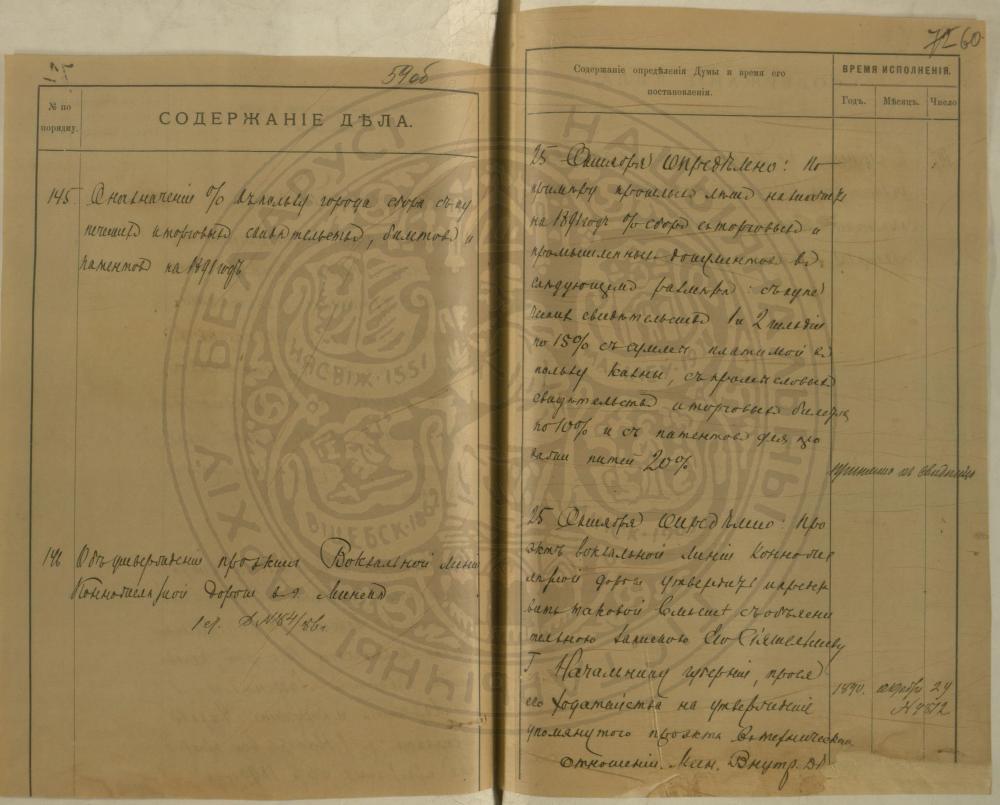 59об
№ по
порядку.
СОДЕРЖАНІЕ ДѢЛА.
145 О назначеніи % въ пользу города сбора съ ку
печескихъ и торговыхъ свидѣтельствъ, билетовъ и
патентовъ на 1891 годъ
146 Объ утвержденіи проэкта Вокзальной линіи
Конножелѣзной дороги въ г. Минскѣ
60
Содержаніе опредѣленія Думы и время его
постановленія.
ВРЕМЯ ИСПОЛНЕНІЯ.
Годъ. Мѣсяцъ. Число
25 Октября опредѣлено: По
примѣру прошлыхъ лѣтъ назначить
на 1891 годъ % сборъ съ торговыхъ и
промышленныхъ документовъ въ
слѣдующемъ размѣрѣ: съ купе
ческихъ свидѣтельствъ 1 и 2 гильдіи
по 15% съ суммы платимой въ
пользу казны, съ промысловыхъ
свидѣтельствъ и торговыхъ билетовъ
по 10% и съ патентовъ для про
дажи питей 20%
къ свѣдѣнію
25 Октября опредѣлено: Про
эктъ вокзальной линіи конножел
ѣзной дороги утвердить и
таковой вмѣстѣ съ объясни
тельною запискою Его Сіятельству
Г. Начальнику губерніи, прося
его ходатайства на утвержденіе
упомянутого проэкта въ техническомъ
отношеніи Мин. Внутр. Дѣ
1890. октября 29
НЯСВІЖ·155
ВІЦЕБСК·186